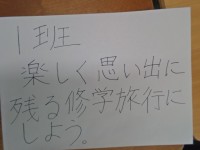 1班
楽しく思い出に
残る修学旅行に
しよう。